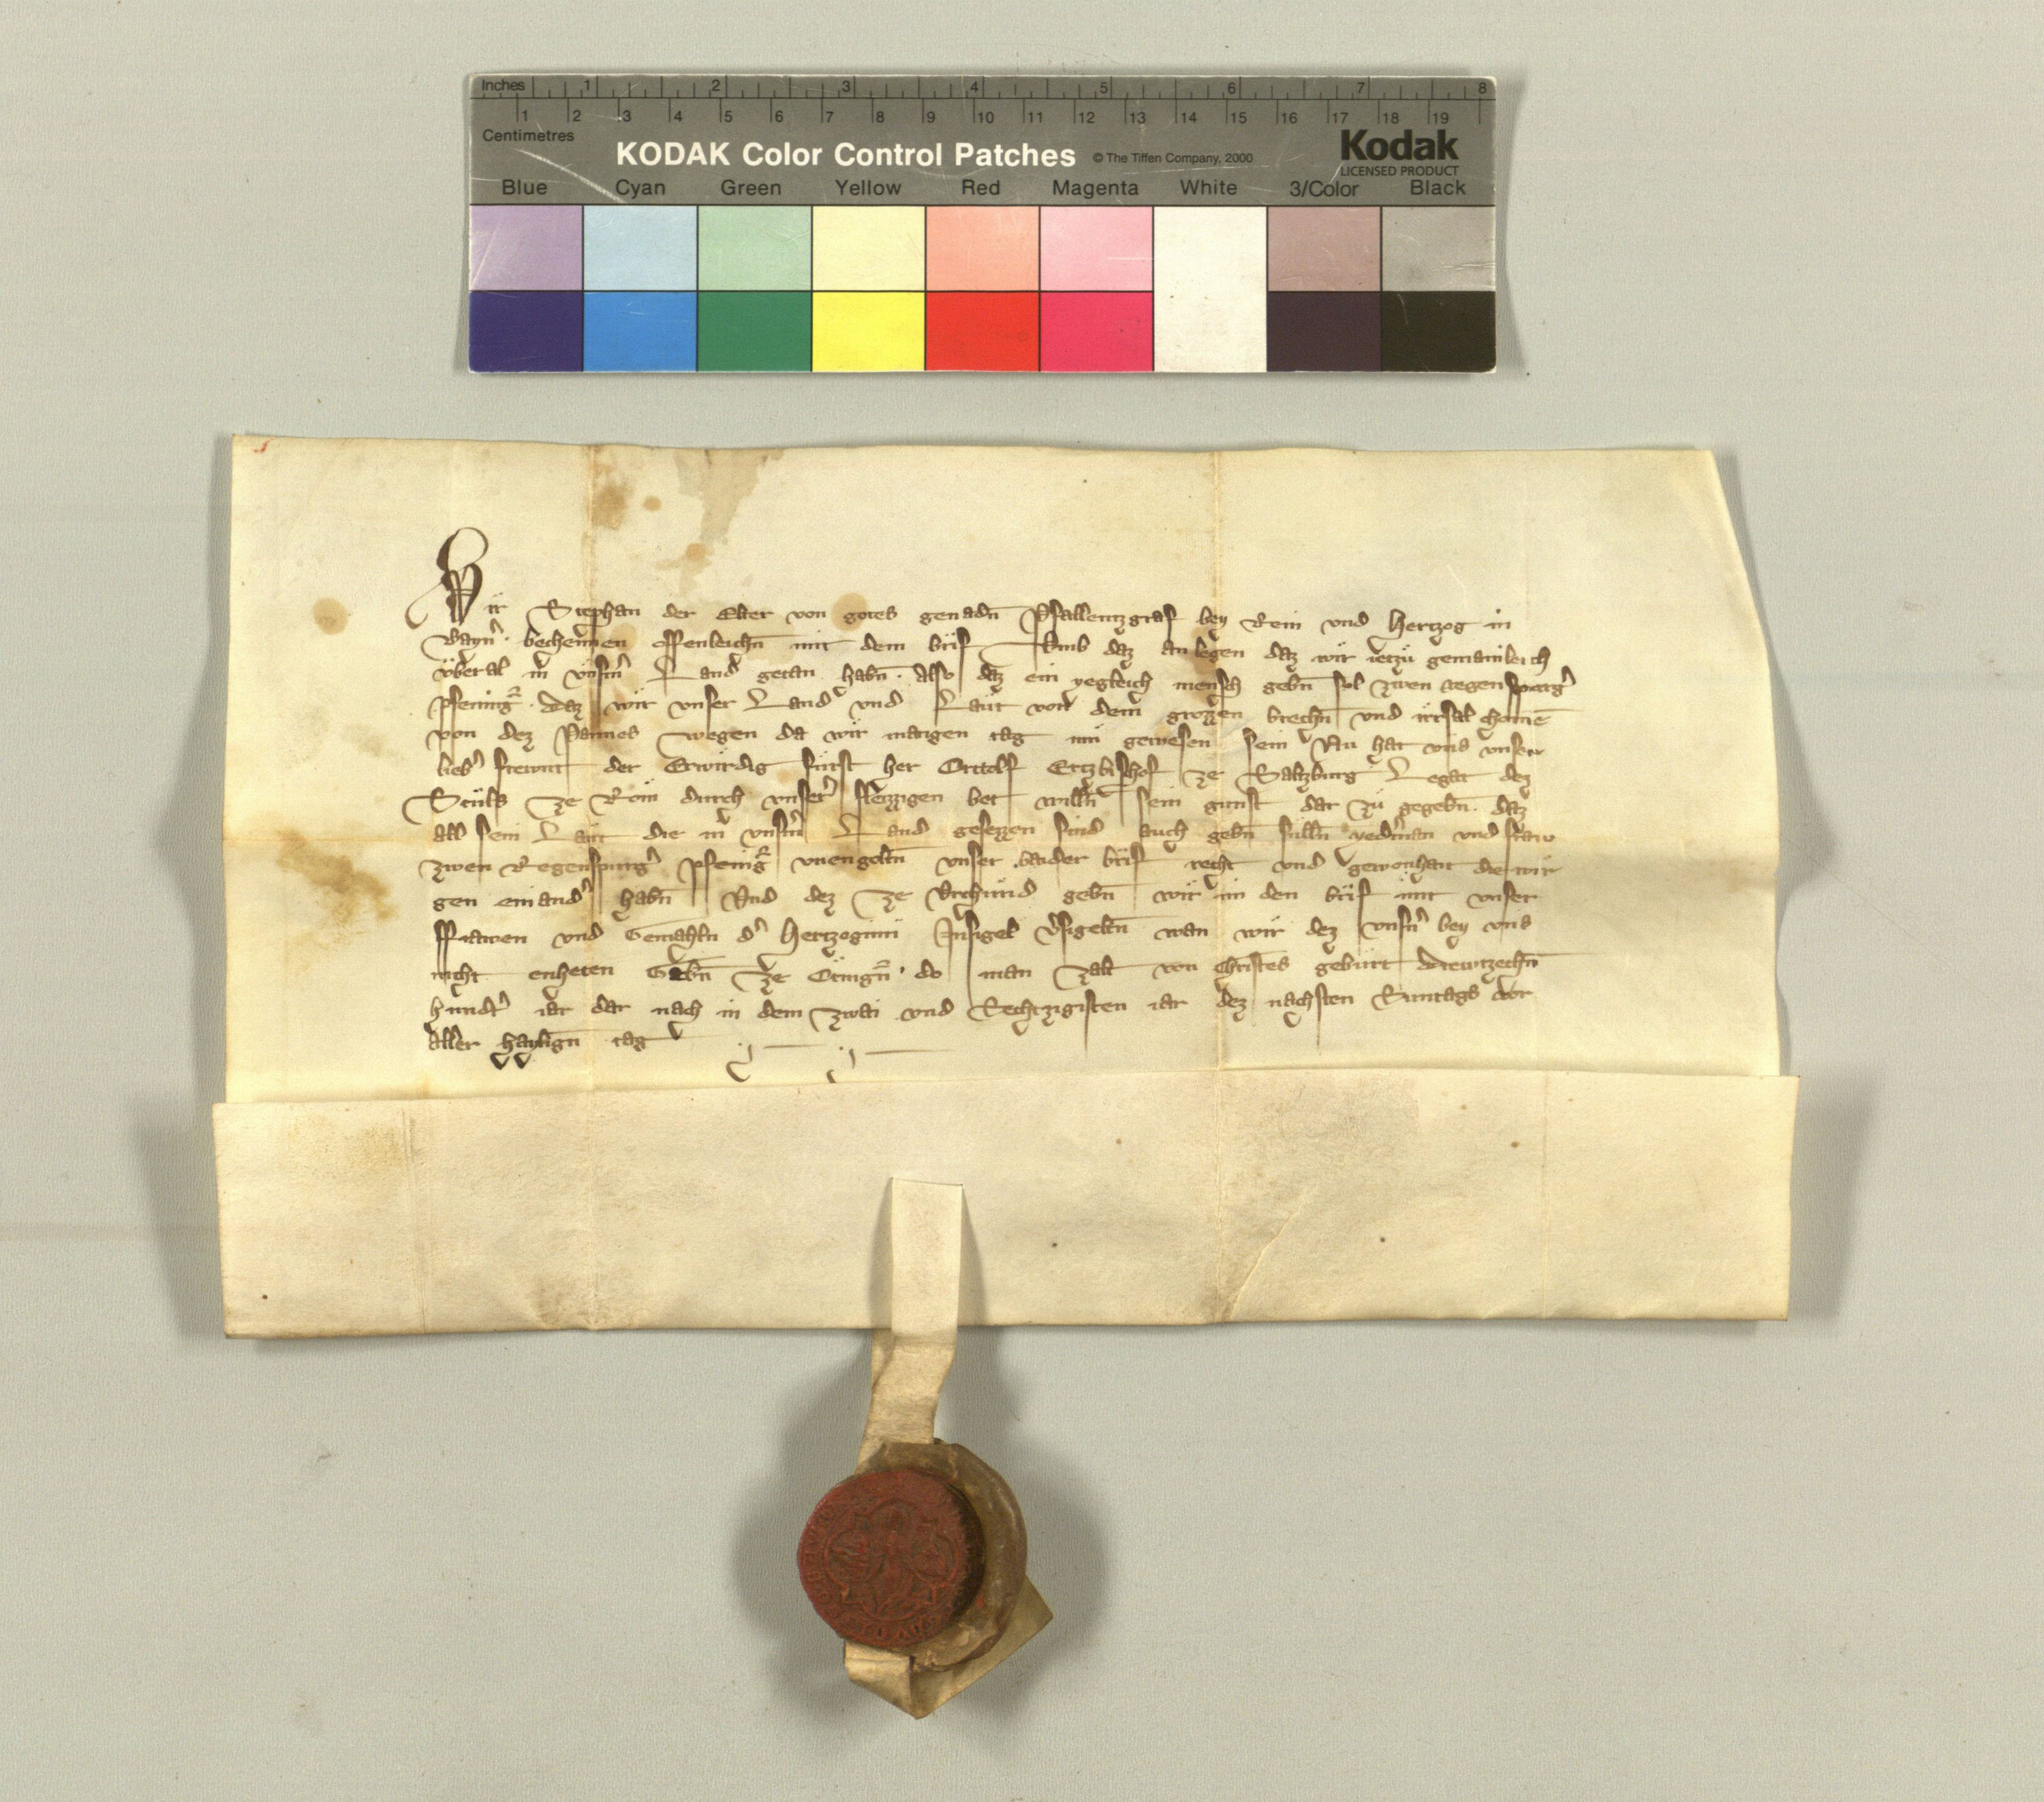 Inches 1 2 3 4 5 6 7 8
1 2 3 4 5 6 7 8 9 10 11 12 13 14 15 16 17 18 19
Centimetres
KODAK Color Control Patches © The Tiffen Company, 2000 Kodak
LICENSED PRODUCT
Blue Cyan Green Yellow Red Magenta White 3/Color Black
Wir Stephan der Elter von gotes genadn̄ Pfallentzgraf bey Rein vnd Hertzog in
Bayrn̄ · bechennen offenleichn̄ mit dem brif Vmb daz anlegen daz wir ietzü gemainleich
überal in vnsm̄ Land getan habn̄ · Also daz ein yegleich mensch gebn̄ sol zwen regenspurḡ
pfeninḡ · Daz wir vnser Land vnd Läut von dem grozzen brechn̄ vnd irrsal chomē
von dez Pannes wegen da wir mangen tag inn gewesen sein Nu hat vns vnser
lieb̄ frewnt der Erwirdig fürst her Ortolf Ertzbischof ze Saltzburg Legat dez
Stüls ze Rom durch vnser̄ fleizzigen bet willn̄ sein gunst dar zü gegebn̄ · daz
all sein Läut die in vnsm̄ Land gesezzen sind auch gebn̄ sülln̄ yederman vnd fraw
zwen Regenspurḡ pfeninḡ vnengoltn̄ vnser baider brif recht vnd gewonhait die wir
gen einand̄ habn̄ Vnd dez ze Vrchünd gebn̄ wir im den brif mit vnser
frawen vnd Gemahln d̄ Hertzoginn Insigel v̄sigeltn̄ wan wir dez vnsn̄ bey vns
nicht enheten Gebn̄ ze Ötingn̄ · do man zalt von Christes gebürt Drewtzechn̄
hundt̄ iar dar nach in dem zwai vnd Sechtzigisten iar dez nachsten Suntags vor
aller haylign̄ tag